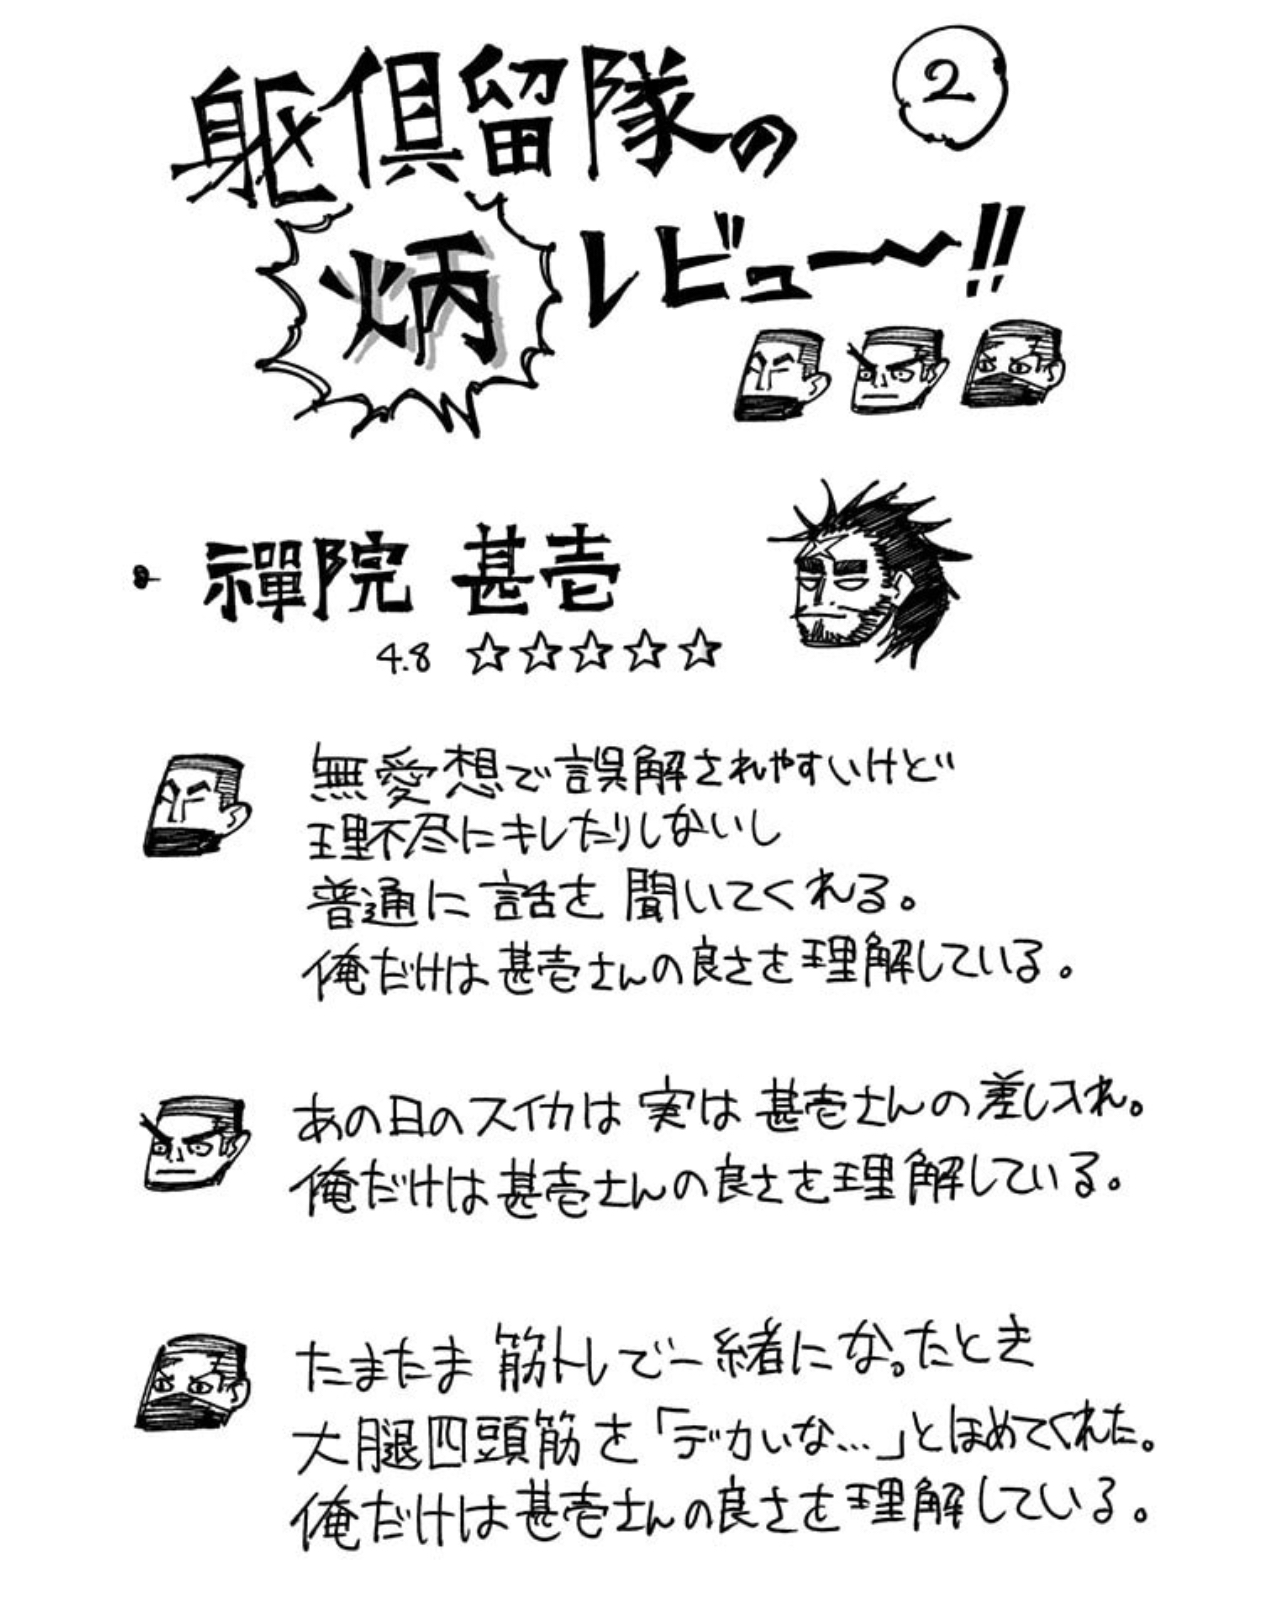 躯倶留隊の
②
炳レビュー〜!!
・禪院 甚壱
4.8 ☆☆☆☆☆
無愛想で誤解されやすいけど
理不尽にキレたりしないし
普通に話を聞いてくれる。
俺だけは甚壱さんの良さを理解している。
あの日のスイカは実は甚壱さんの差し入れ。
俺だけは甚壱さんの良さを理解している。
たまたま筋トレで一緒になったとき
大腿四頭筋を「デカいな…」とほめてくれた。
俺だけは甚壱さんの良さを理解している。